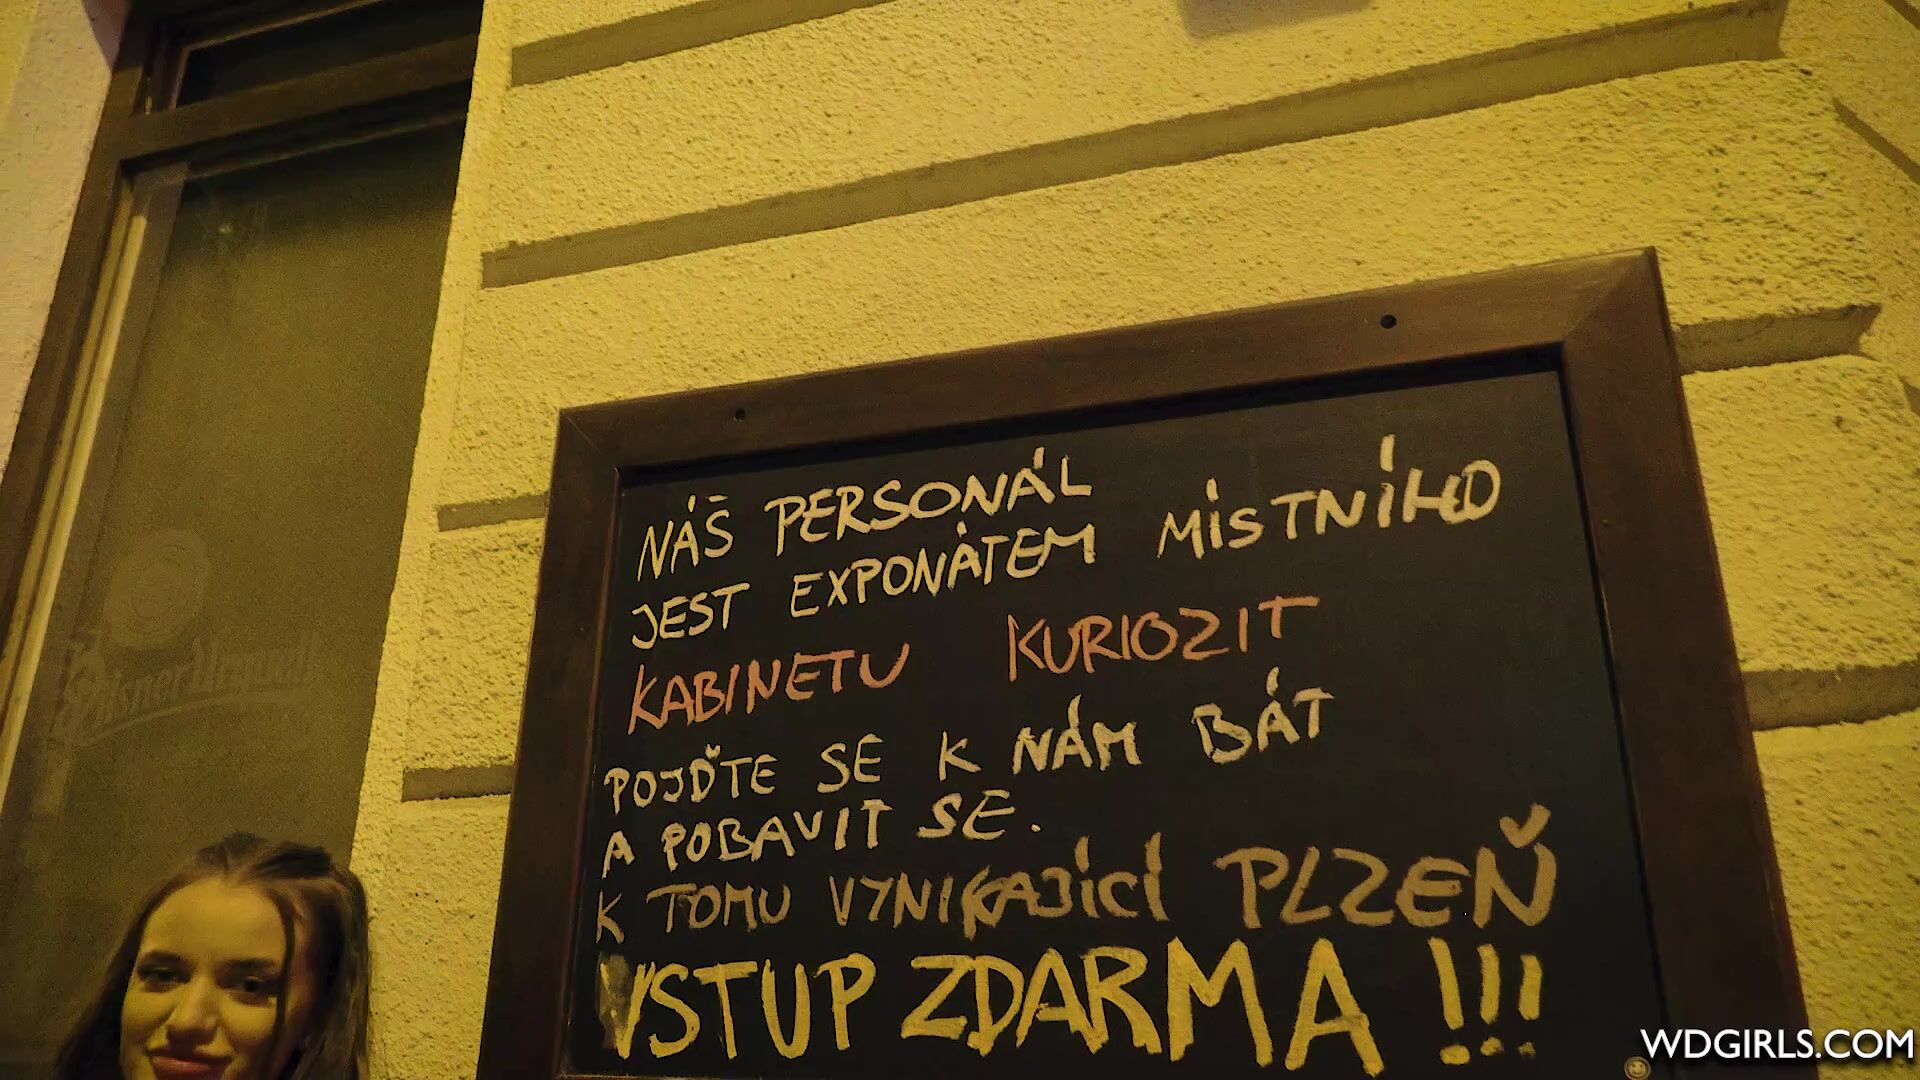 NÁŠ PERSONÁL
JEST EXPONÁTEM MÍSTNÍHO
KABINETU KURIOZIT
POJĎTE SE K NÁM BÁT
A POBAVIT SE.
K TOMU VYNIKAJÍCÍ PLZEŇ
VSTUP ZDARMA !!!
Pilsner Urquell
WDGIRLS.COM